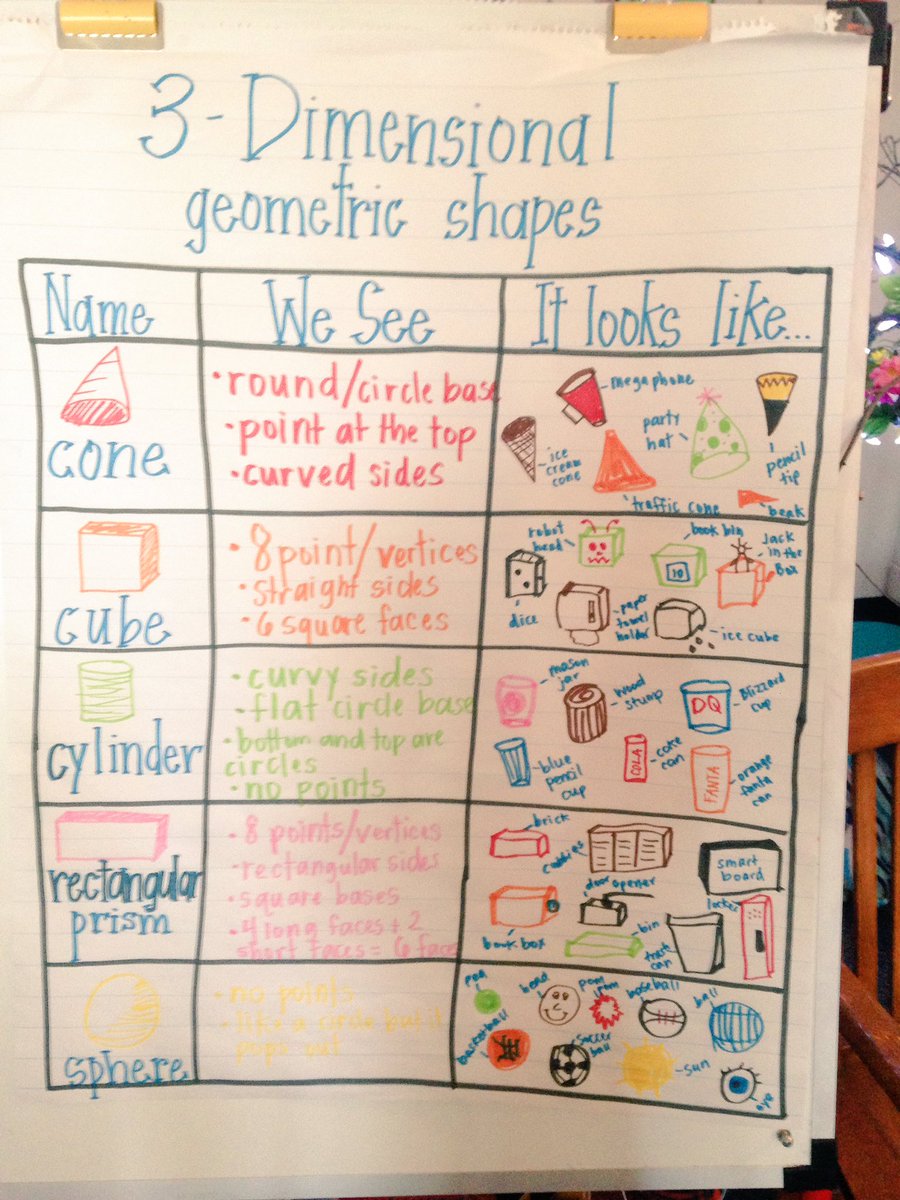 3-Dimensional
geometric shapes
Name
We See
It looks like...
cone
•round/circle base
•point at the top
•curved sides
megaphone
party
hat
ice
cream
cone
pencil
tip
traffic cone
beak
cube
•8 point/vertices
•straight sides
•6 square faces
robot
head
book bin
10
Jack
in the
Box
dice
paper
towel
holder
ice cube
cylinder
•curvy sides
•flat circle base
•bottom and top are
circles
•no points
mason
jar
wood
stump
DQ
Blizzard
cup
blue
pencil
cup
COLA
coke
can
FANTA
orange
fanta
can
rectangular
prism
•8 points/vertices
•rectangular sides
•square bases
•4 long faces + 2
short faces = 6 faces
brick
cubbies
smart
board
door opener
book box
bin
trash
can
locker
sphere
•no points
•like a circle but it
pops out
pea
head
pom
pom
baseball
ball
basketball
soccer
ball
sun
eye